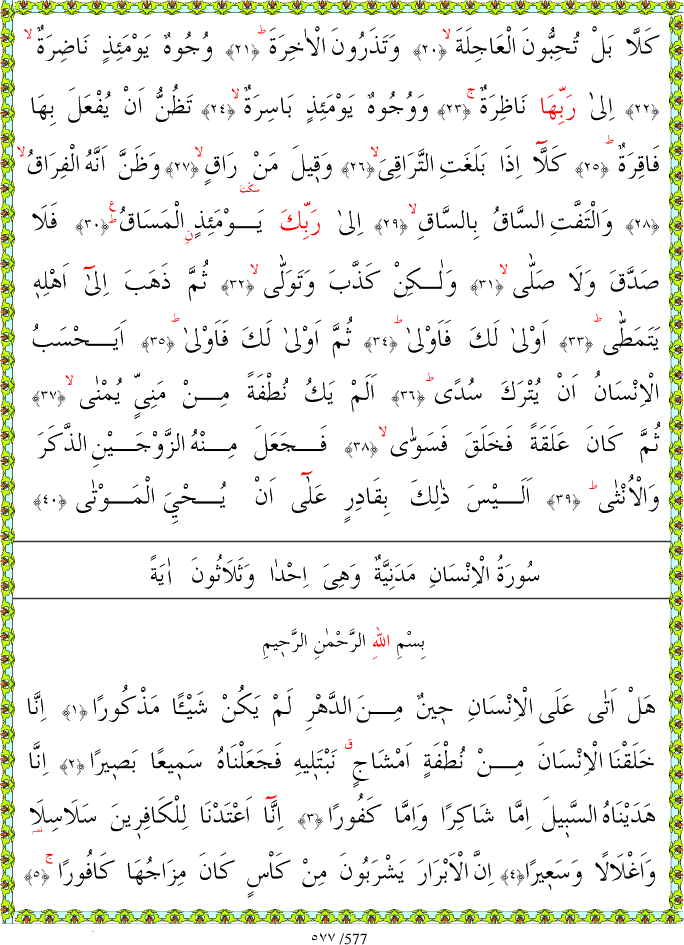 كَلَّا بَلْ تُحِبُّونَ الْعَاجِلَةَۙ ﴿٢٠﴾ وَتَذَرُونَ الْاٰخِرَةَۜ ﴿٢١﴾ وُجُوهٌ يَوْمَئِذٍ نَاضِرَةٌۙ
﴿٢٢﴾ اِلٰى رَبِّهَا نَاظِرَةٌۚ ﴿٢٣﴾ وَوُجُوهٌ يَوْمَئِذٍ بَاسِرَةٌۙ ﴿٢٤﴾ تَظُنُّ اَنْ يُفْعَلَ بِهَا
فَاقِرَةٌۜ ﴿٢٥﴾ كَلَّٓا اِذَا بَلَغَتِ التَّرَاقِيَۙ ﴿٢٦﴾ وَق۪يلَ مَنْ۔ رَاقٍۙ ﴿٢٧﴾ وَظَنَّ اَنَّهُ الْفِرَاقُۙ
﴿٢٨﴾ وَالْتَفَّتِ السَّاقُ بِالسَّاقِۙ ﴿٢٩﴾ اِلٰى رَبِّكَ يَوْمَئِذٍۨ الْمَسَاقُۜ۟ ﴿٣٠﴾ فَلَا
صَدَّقَ وَلَا صَلّٰىۙ ﴿٣١﴾ وَلٰكِنْ كَذَّبَ وَتَوَلّٰىۙ ﴿٣٢﴾ ثُمَّ ذَهَبَ اِلٰٓى اَهْلِه۪
يَتَمَطّٰىۜ ﴿٣٣﴾ اَوْلٰى لَكَ فَاَوْلٰىۜ ﴿٣٤﴾ ثُمَّ اَوْلٰى لَكَ فَاَوْلٰىۜ ﴿٣٥﴾ اَيَحْسَبُ
الْاِنْسَانُ اَنْ يُتْرَكَ سُدًىۜ ﴿٣٦﴾ اَلَمْ يَكُ نُطْفَةً مِنْ مَنِيٍّ يُمْنٰىۙ ﴿٣٧﴾
ثُمَّ كَانَ عَلَقَةً فَخَلَقَ فَسَوّٰىۙ ﴿٣٨﴾ فَجَعَلَ مِنْهُ الزَّوْجَيْنِ الذَّكَرَ
وَالْاُنْثٰىۜ ﴿٣٩﴾ اَلَيْسَ ذٰلِكَ بِقَادِرٍ عَلٰٓى اَنْ يُحْيِيَ الْمَوْتٰى ﴿٤٠﴾
سُورَةُ الْاِنْسَانِ مَدَنِيَّةٌ وَهِىَ اِحْدٰا وَثَلَاثُونَ اٰيَةً
بِسْمِ اللّٰهِ الرَّحْمٰنِ الرَّح۪يمِ
هَلْ اَتٰى عَلَى الْاِنْسَانِ ح۪ينٌ مِنَ الدَّهْرِ لَمْ يَكُنْ شَيْـًٔا مَذْكُورًا ﴿١﴾ اِنَّا
خَلَقْنَا الْاِنْسَانَ مِنْ نُطْفَةٍ اَمْشَاجٍۗ نَبْتَل۪يهِ فَجَعَلْنَاهُ سَم۪يعًا بَص۪يرًا ﴿٢﴾ اِنَّا
هَدَيْنَاهُ السَّب۪يلَ اِمَّا شَاكِرًا وَاِمَّا كَفُورًا ﴿٣﴾ اِنَّٓا اَعْتَدْنَا لِلْكَافِر۪ينَ سَلَاسِلَا۬
وَاَغْلَالًا وَسَع۪يرًا ﴿٤﴾ اِنَّ الْاَبْرَارَ يَشْرَبُونَ مِنْ كَأْسٍ كَانَ مِزَاجُهَا كَافُورًاۚ ﴿٥﴾
٥٧٧ /577